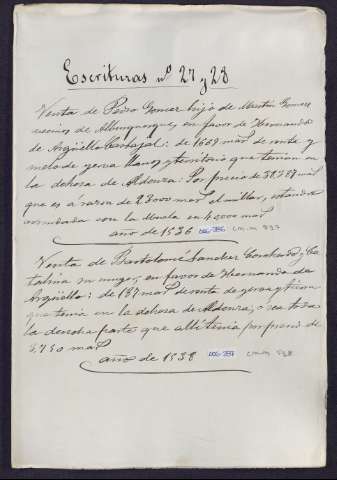 Escrituras nº 27 y 28
Venta de Pedro Gomez hijo de Martin Gomez
vecinos de Alburquerque, en favor de Hernando
de Argüello Carbajal: de 1669 mrs de renta y
meta de yerva llanos y territorio que tenian en
la dehesa de Aldonza: Por precio de 38,387 mrs
que es á razon de 23000 mrs el millar, estando
arrendada con la Mesta en 4000 mrs
año de 1536 006-256 C.M.M 837
Venta de Bartolomé Sanchez Conchado y Ca-
talina su muger, en favor de Hernando de
Argüello: de 187 mrs de renta de yerva y tierra
que tenia en la dehesa de Aldonza, o sea toda
la derecha parte que alli tenia por precio de
3,750 mrs
año de 1538 006-257 C.M.M 838